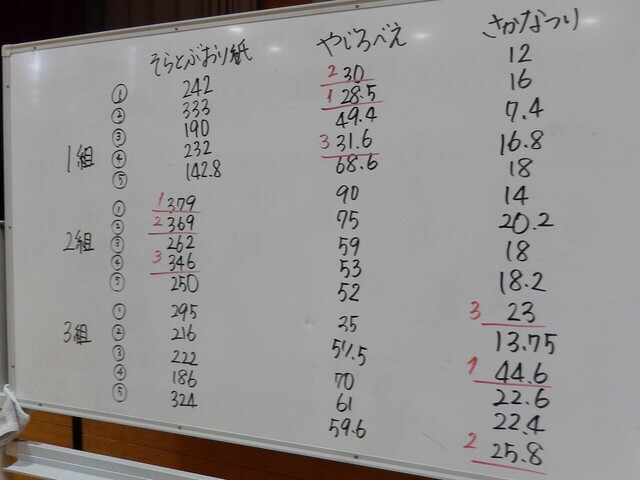 そらとぶおり紙 やじろべえ さかなつり
1組 ① 242 2 30 12
② 333 1 28.5 16
③ 190 49.4 7.4
④ 232 3 31.6 16.8
⑤ 142.8 68.6 18
2組 ① 1 379 90 14
② 2 369 75 20.2
③ 262 59 18
④ 3 346 53 18.2
⑤ 250 52 3 23
3組 ① 295 35 13.75
② 216 51.5 1 44.6
③ 222 70 22.6
④ 186 61 22.4
⑤ 324 59.6 2 25.8